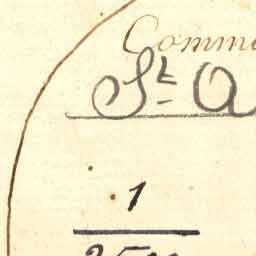 Comm
St A
1